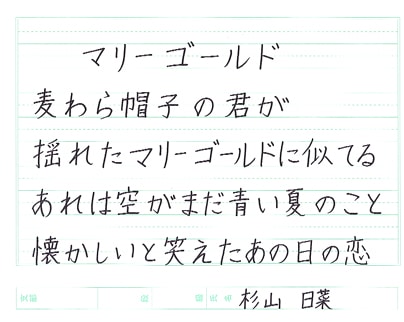 マリーゴールド
麦わら帽子の君が
揺れたマリーゴールドに似てる
あれは空がまだ青い夏のこと
懐かしいと笑えたあの日の恋
氏名 杉山 日菜